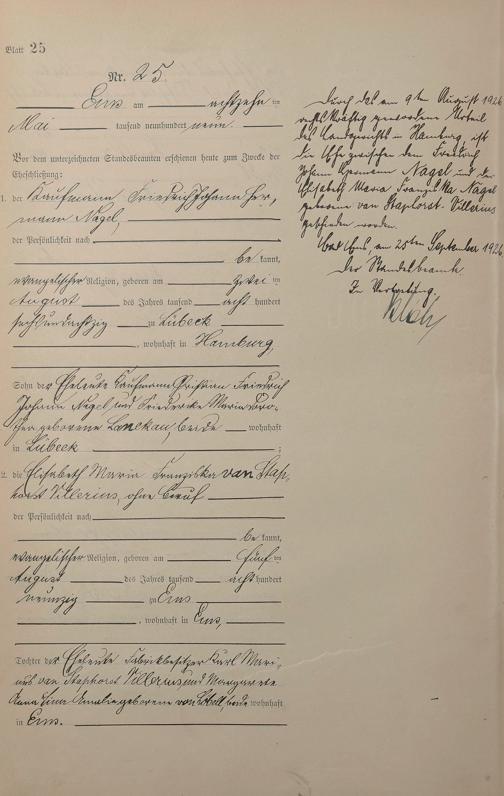 Blatt 25
Nr. 25.
Ems am achtzehnten
Mai tausend neunhundert neun.
Vor dem unterzeichneten Standesbeamten erschienen heute zum Zwecke der
Eheschließung:
1. der Kaufmann Friedrich Johann Her-
mann Nagel,
der Persönlichkeit nach
be kannt,
evangelischer Religion, geboren am zweiten
August des Jahres tausend acht hundert
sechsundachtzig zu Lübeck
, wohnhaft in Hamburg,
Sohn der Eheleute Kaufmann Christian Friedrich
Johann Nagel und Friedericke Maria Doro-
thea geborene Lanckau, beide wohnhaft
in Lübeck ;
2. die Elisabeth Maria Franziska van Stap-
horst Villerius, ohne Beruf
der Persönlichkeit nach
be kannt,
evangelischer Religion, geboren am fünften
August des Jahres tausend acht hundert
neunzig zu Ems
, wohnhaft in Ems,
Tochter der Eheleute Fabrikbesitzer Karl Mari-
nus van Staphorst Villerius und Margarete
Anna Amalie geborene von beide wohnhaft
in Ems.
Durch das am 9ten August 1926
rechtskräftig gewordene Urteil
des Landgerichts in Hamburg, ist
die Ehe zwischen dem Friedrich
Johann Hermann Nagel und der
Elisabeth Maria Franziska Nagel
geborene van Staphorst-Villerius
geschieden worden.
Bad Ems, am 25ten September 1926
Der Standesbeamte
In Vertretung.